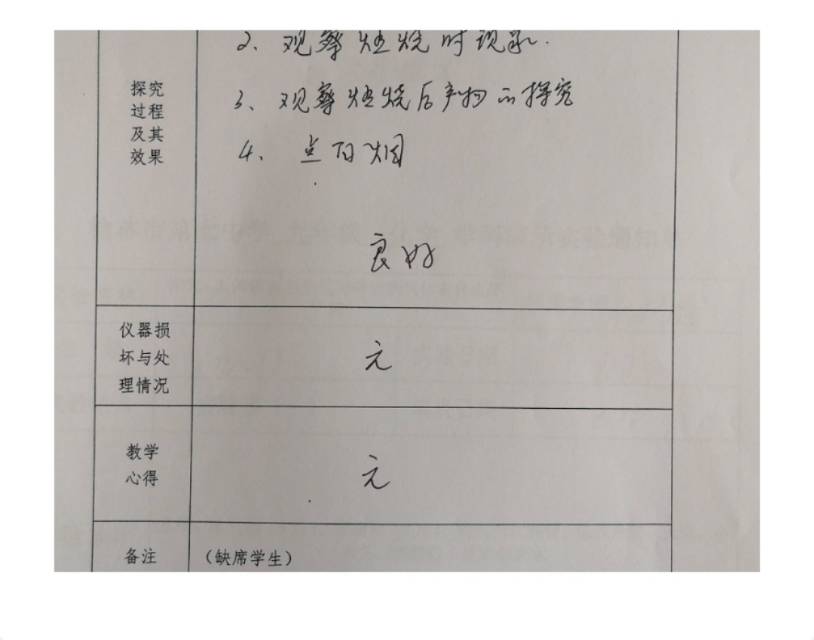 2、观察燃烧时现象.
探究
过程
及其
效果
3、观察燃烧后产物的探究
4、点白烟
良好
仪器损
坏与处
理情况
无
教学
心得
无
备注
(缺席学生)